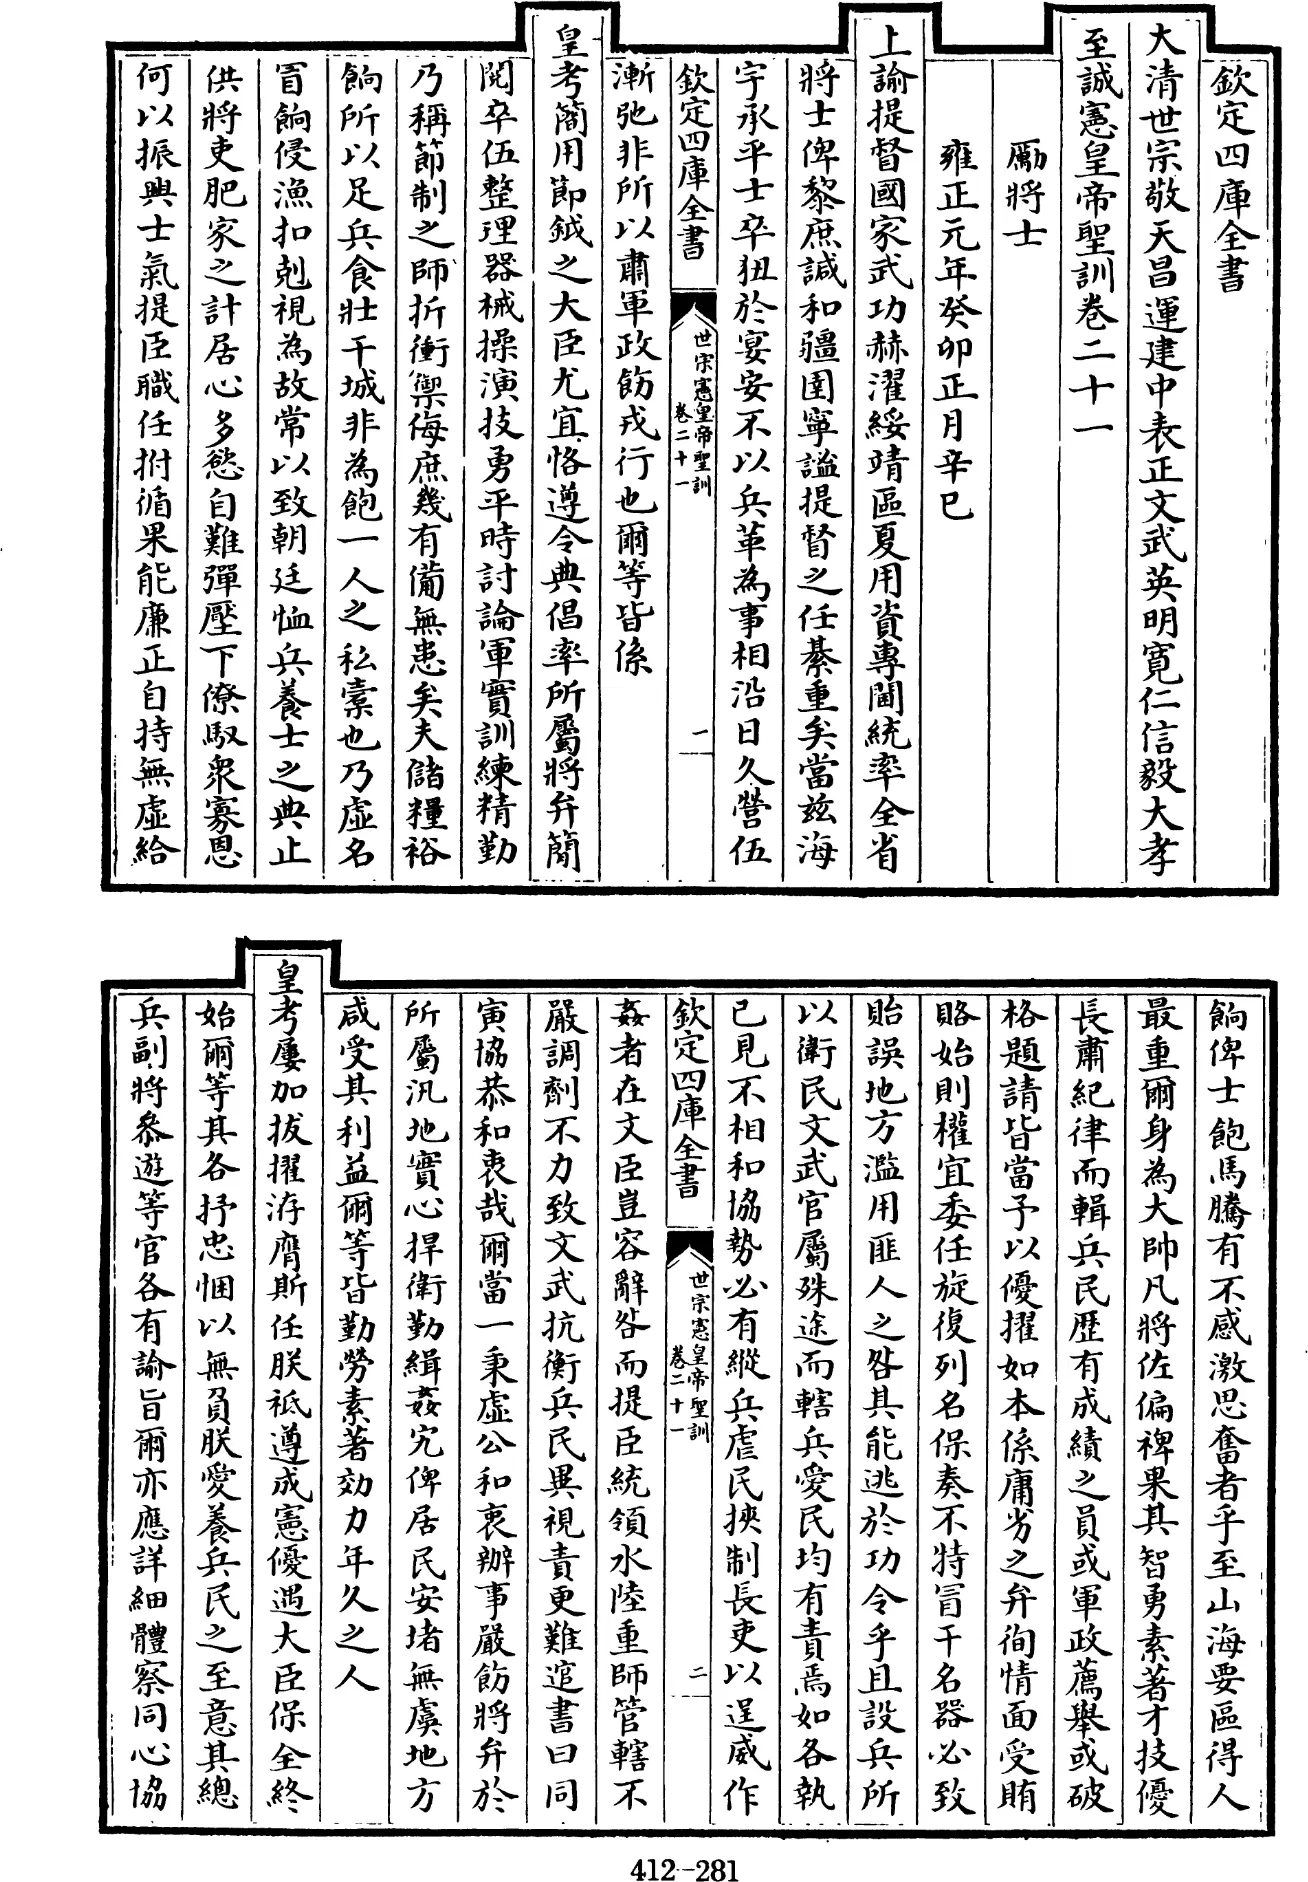 欽定四庫全書
大清世宗敬天昌運建中表正文武英明寛仁信毅大孝
至誠憲皇帝聖訓巻二十一
勵將士
雍正元年癸卯正月辛巳
上諭提督國家武功赫濯綏靖區夏用資專閫統率全省
將士俾黎庶諴和疆圉寧謐提督之任綦重矣當兹海
宇承平士卒狃於宴安不以兵革為事相沿日久營伍
欽定四庫全書
世宗憲皇帝聖訓
巻二十一
一
漸弛非所以肅軍政飭戎行也爾等皆係
皇考簡用節鉞之大臣尤宜恪遵令典倡率所屬將弁簡
閱卒伍整理器械操演技勇平時討論軍實訓練精勤
乃稱節制之師折衝禦侮庶幾有備無患矣夫儲糧裕
餉所以足兵食壯干城非為飽一人之私橐也乃虛名
冒餉侵漁扣剋視為故常以致朝廷恤兵養士之典止
供將吏肥家之計居心多慾自難彈壓下僚馭衆寡恩
何以振興士氣提臣職任拊循果能廉正自持無虛給
餉俾士飽馬騰有不感激思奮者乎至山海要區得人
最重爾身為大帥凡將佐偏裨果其智勇素著才技優
長肅紀律而輯兵民歷有成績之員或軍政薦舉或破
格題請皆當予以優擢如本係庸劣之弁徇情面受賄
賂始則權宜委任旋復列名保奏不特冒干名器必致
貽誤地方濫用匪人之咎其能逃於功令乎且設兵所
以衛民文武官屬殊途而轄兵愛民均有責焉如各執
已見不相和協勢必有縱兵虐民挾制長吏以逞威作
欽定四庫全書
世宗憲皇帝聖訓
巻二十一
二
姦者在文臣豈容辭咎而提臣統領水陸重師管轄不
嚴調劑不力致文武抗衡兵民異視責更難逭書曰同
寅協恭和衷哉爾當一秉虛公和衷辦事嚴飭將弁於
所屬汛地實心捍衛勤緝姦宄俾居民安堵無虞地方
咸受其利益爾等皆勤勞素著効力年久之人
皇考屢加拔擢洊膺斯任朕祗遵成憲優遇大臣保全終
始爾等其各抒忠悃以無負朕愛養兵民之至意其總
兵副將叅遊等官各有諭旨爾亦應詳細體察同心協
412-281